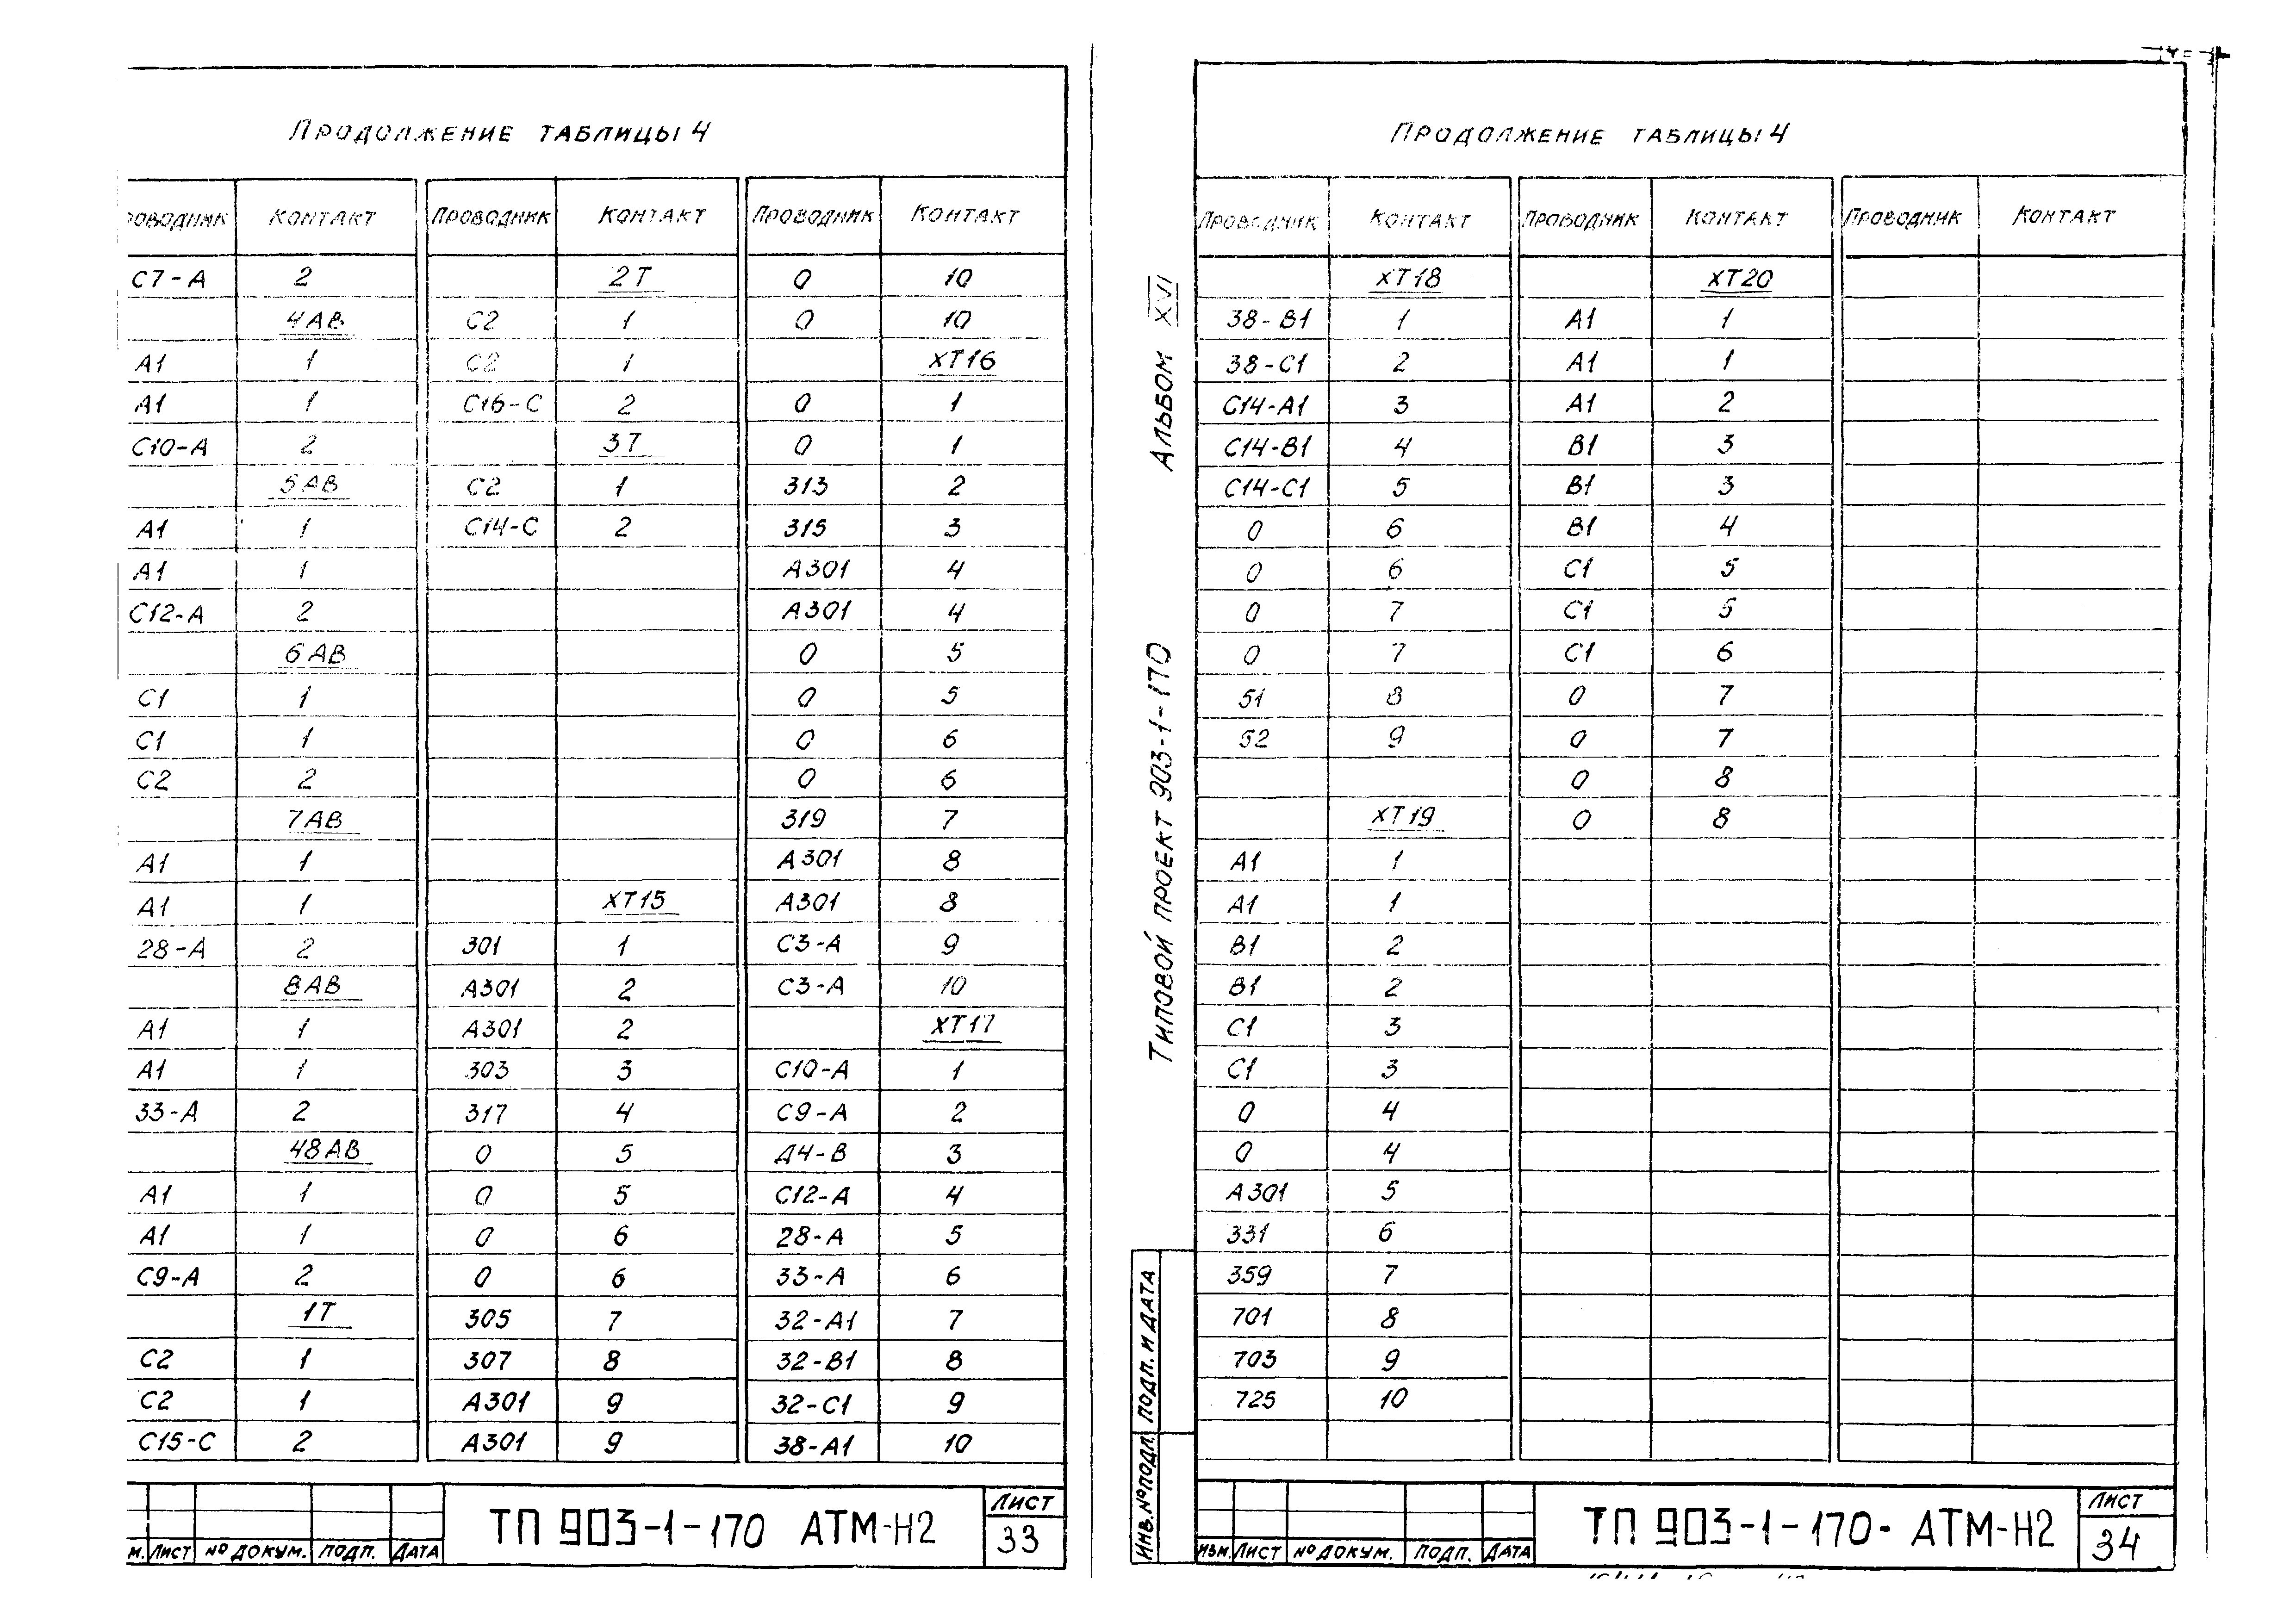 Продолжение таблицы 4
Проводник Контакт Проводник Контакт Проводник Контакт
С7-А 2 2Т 0 10
4АВ С2 1 0 10
А1 1 С2 1 ХТ16
А1 1 С16-С 2 0 1
С10-А 2 3Т 0 1
5АВ С2 1 313 2
А1 1 С14-С 2 315 3
А1 1 А301 4
С12-А 2 А301 4
6АВ 0 5
С1 1 0 5
С1 1 0 6
С2 2 0 6
7АВ 319 7
А1 1 А301 8
А1 1 ХТ15 А301 8
28-А 2 301 1 С3-А 9
8АВ А301 2 С3-А 10
А1 1 А301 2 ХТ17
А1 1 303 3 С10-А 1
33-А 2 317 4 С9-А 2
48АВ 0 5 Д4-В 3
А1 1 0 5 С12-А 4
А1 1 0 6 28-А 5
С9-А 2 0 6 33-А 6
1Т 305 7 32-А1 7
С2 1 307 8 32-В1 8
С2 1 А301 9 32-С1 9
С15-С 2 А301 9 38-А1 10
М. Лист № докум. Подп. Дата
ТП 903-1-170 АТМ-Н2
Лист
33
Продолжение таблицы 4
Альбом XVI
Типовой проект 903-1-170
Проводник Контакт Проводник Контакт Проводник Контакт
ХТ18 ХТ20
38-В1 1 А1 1
38-С1 2 А1 1
С14-А1 3 А1 2
С14-В1 4 В1 3
С14-С1 5 В1 3
0 6 В1 4
0 6 С1 5
0 7 С1 5
0 7 С1 6
51 8 0 7
52 9 0 7
0 8
ХТ19 0 8
А1 1
А1 1
В1 2
В1 2
С1 3
С1 3
0 4
0 4
А301 5
331 6
359 7
701 8
703 9
725 10
Инв. № подл. Подп. и дата
Изм. Лист № докум. Подп. Дата
ТП 903-1-170- АТМ-Н2
Лист
34